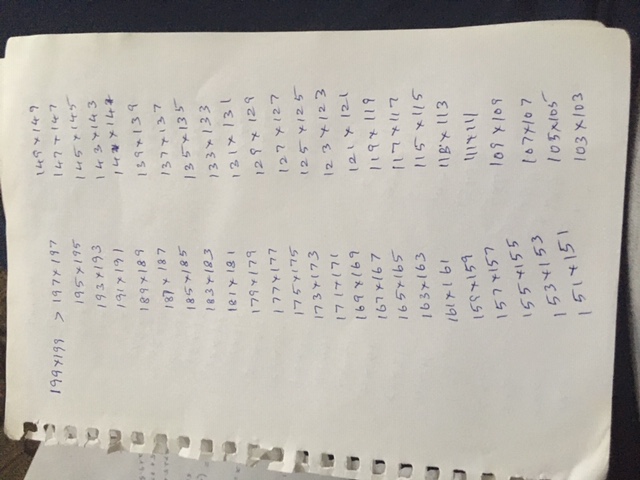 199×199 > 197×197
195×195
193×193
191×191
189×189
187×187
185×185
183×183
181×181
179×179
177×177
175×175
173×173
171×171
169×169
167×167
165×165
163×163
161×161
159×159
157×157
155×155
153×153
151×151
149×149
147×147
145×145
143×143
141×141
139×139
137×137
135×135
133×133
131×131
129×129
127×127
125×125
123×123
121×121
119×119
117×117
115×115
113×113
111×111
109×109
107×107
105×105
103×103